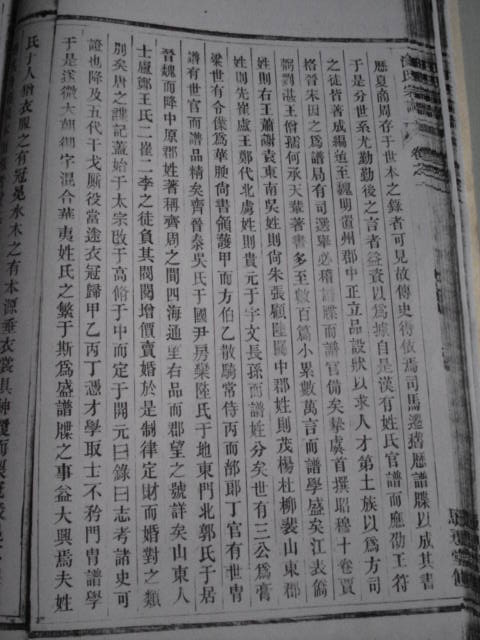 歷夏商周存于世本之錄者可見故傳史得依焉司馬遷據歷譜牒以成其書
于是分世系尤勤勤後之言者益資以爲據自是漢有姓氏官譜而應劭王符
之徒皆著成編迨至繩明置州郡中正立品設狀以求人才第土族以爲方司
格晉宋因之爲譜局有司選舉必稽譜牒而譜官備矣摯虞首撰昭穆十卷賈
弼劉湛王僧孺何承天輩著書多至數百篇小累數萬言而譜學盛矣江表僑
姓則右王蕭謝袁東南吳姓則尙朱張顧陸關中郡姓則茂楊杜柳裴山東郡
姓則先崔盧王鄭代北虜姓則貴元于宇文長孫而譜姓分矣世有三公爲膏
梁世有令僕爲華腴尙書領護甲而方伯乙散騎常侍丙而部郎丁官有世冑
譜有世官而譜品精矣齊晉泰吳氏于國尹房榮陸氏于地東門北郭氏于居
晉魏而降中原郡姓著稱齊周之間四海通里右品而郡望之號詳矣山東人
士盧鄭王氏二崔二李之徒負其閥閱增價賣婚於是制律定財而婚對之類
別矣唐之譜記蓋始于太宗改于高脩于中而定于開元曰錄曰志考諸史可
證也降及五代干戈厮役當塗衣冠歸甲乙丙丁憑才學取士不矜門冑譜學
于是遂微大朝御宇混合華夷姓氏之繁于斯爲盛譜牒之事益大興焉夫姓
氏于人猶衣服之有冠冕水木之有本源垂衣裳具神
氏宗譜
卷之